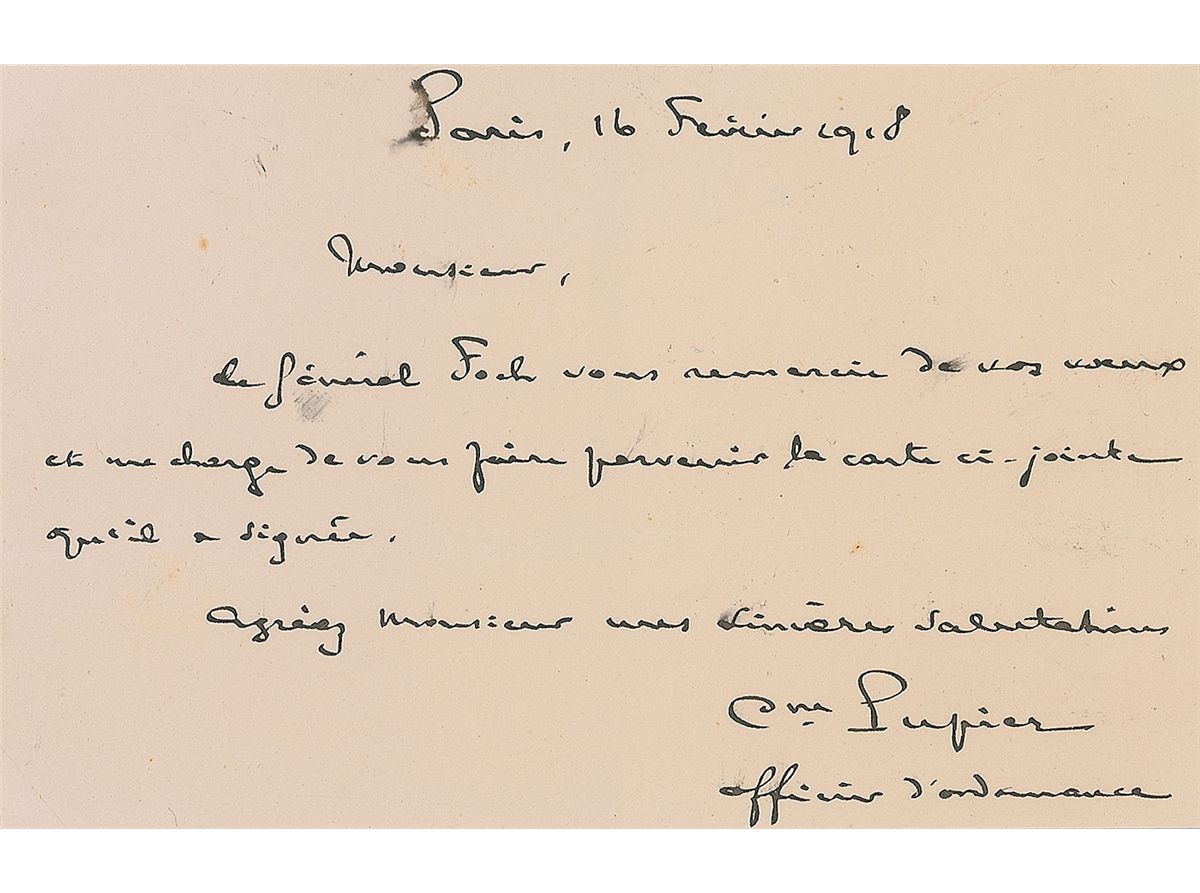 Paris, 16 Février 1918
Monsieur,
Le Général Foch vous remercie de vos vœux
et me charge de vous faire parvenir la carte ci-jointe
qu'il a signée.
Agréez Monsieur mes sincères salutations
Cne Pupier
officier d'ordonnance